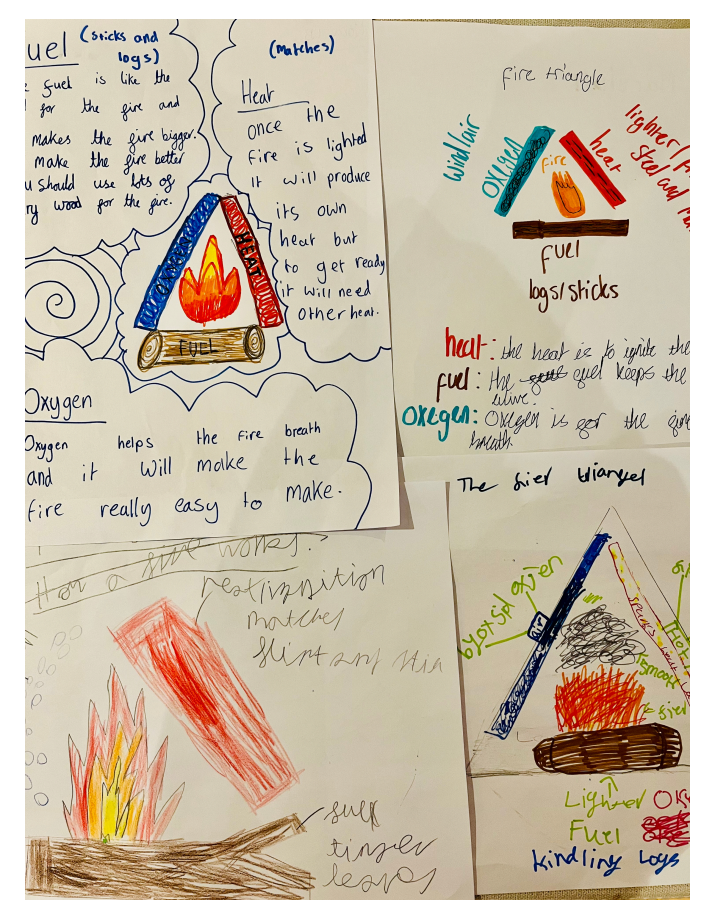 uel (sticks and
logs)
fuel is like the
for the fire and
makes the fire bigger.
make the fire better
u should use lots of
ry wood for the fire.
(matches)
Heat
once the
fire is lighted
it will produce
its own
heat but
to get ready
it will need
other heat.
OXYGEN
HEAT
FUEL
Oxygen
Oxygen helps the fire breath
and it will make the
fire really easy to make.
fire triangle
wind/air
oxegen
fire
heat
lighter/
Steel and
fuel
logs/sticks
heat: the heat is to ignite the
fuel: the fuel keeps the
alive.
oxegen: Oxegen is for the fire
breath.
How a fire works?
heat/ignition
matches
flint and
fuel
leaves
The fier triangel
air
Hot
smoke
fier
Lighter
Fuel
kindling Logs